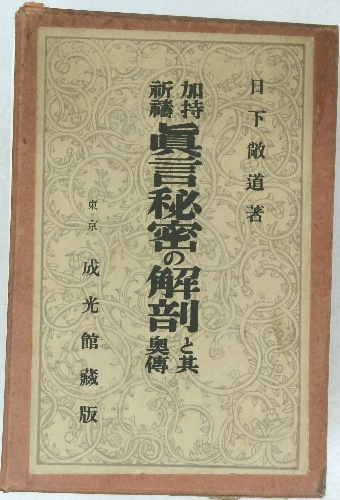 日下敞道著
加持
祈禱
眞言秘密の解剖
と其
奥傳
東京 成光館藏版